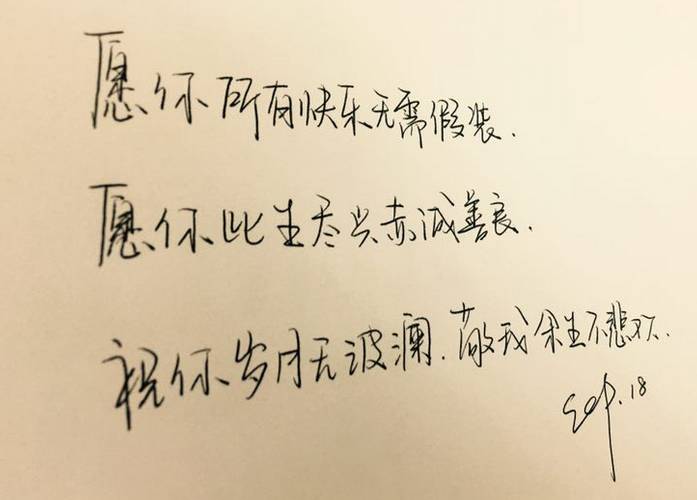 愿你所有快乐无需假装.
愿你此生尽兴赤诚善良.
祝你岁月无波澜.敬我余生不悲欢.
Sep.18